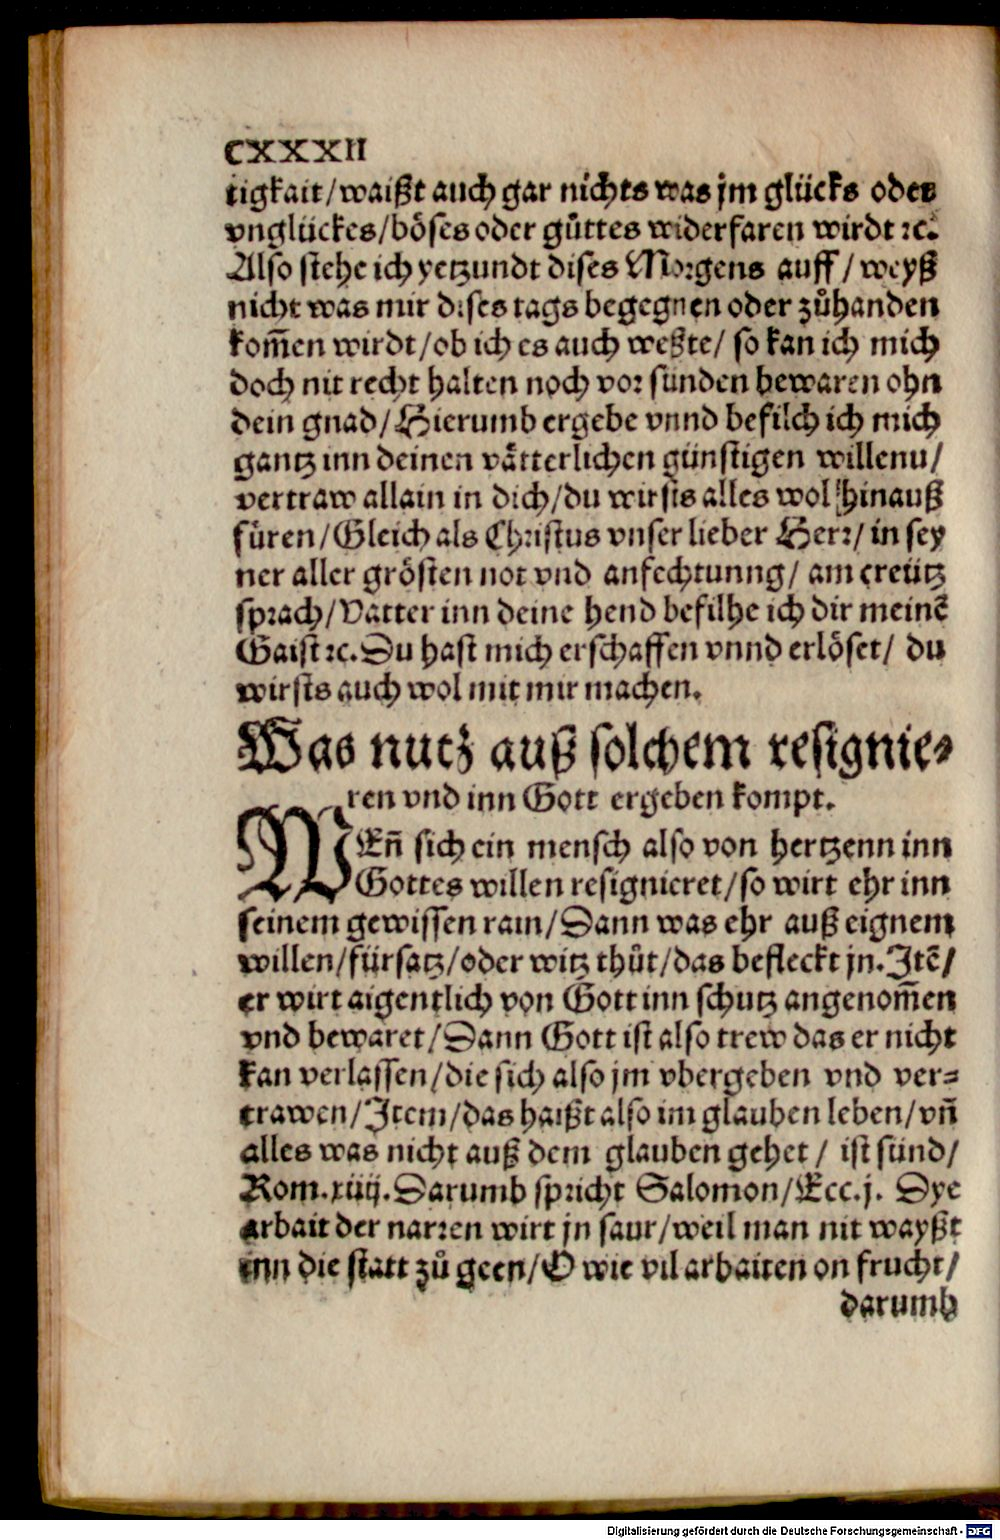 CXXXII
tigkait/waißt auch gar nichts was jm glücks oder
vnglückes/böses oder gůttes widerfaren wirdt ꝛc.
Also stehe ich yetzundt dises Morgens auff/weyß
nicht was mir dises tags begegnen oder zůhanden
kom̃en wirdt/ob ich es auch weßte/ so kan ich mich
doch nit recht halten noch vor sünden bewaren ohn
dein gnad/Hierumb ergebe vnnd befilch ich mich
gantz inn deinen vätterlichen günstigen willenu/
vertraw allain in dich/du wirsts alles wol hinauß
füren/Gleich als Christus vnser lieber Herr/in sey
ner aller grösten not vnd anfechtunng/ am creütz
sprach/Vatter inn deine hend befilhe ich dir meinẽ
Gaist ꝛc. Du hast mich erschaffen vnnd erlöset/ du
wirsts auch wol mit mir machen.
Was nutz auß solchem resignie-
ren vnd inn Gott ergeben kompt.
WEñ sich ein mensch also von hertzenn inn
Gottes willen resignieret/so wirt ehr inn
seinem gewissen rain/Dann was ehr auß eignem
willen/fürsatz/oder witz thůt/das befleckt jn. Itẽ/
er wirt aigentlich von Gott inn schutz angenom̃en
vnd bewaret/Dann Gott ist also trew das er nicht
kan verlassen/die sich also jm vbergeben vnd ver-
trawen/Item/das haißt also im glauben leben/vñ
alles was nicht auß dem glauben gehet/ ist sünd/
Rom. xiiij. Darumb spricht Salomon/Ecc. j. Dye
arbait der narren wirt jn saur/weil man nit wayßt
inn die statt zů geen/O wie vil arbaiten on frucht/
darumb
Digitalisierung gefördert durch die Deutsche Forschungsgemeinschaft - DFG